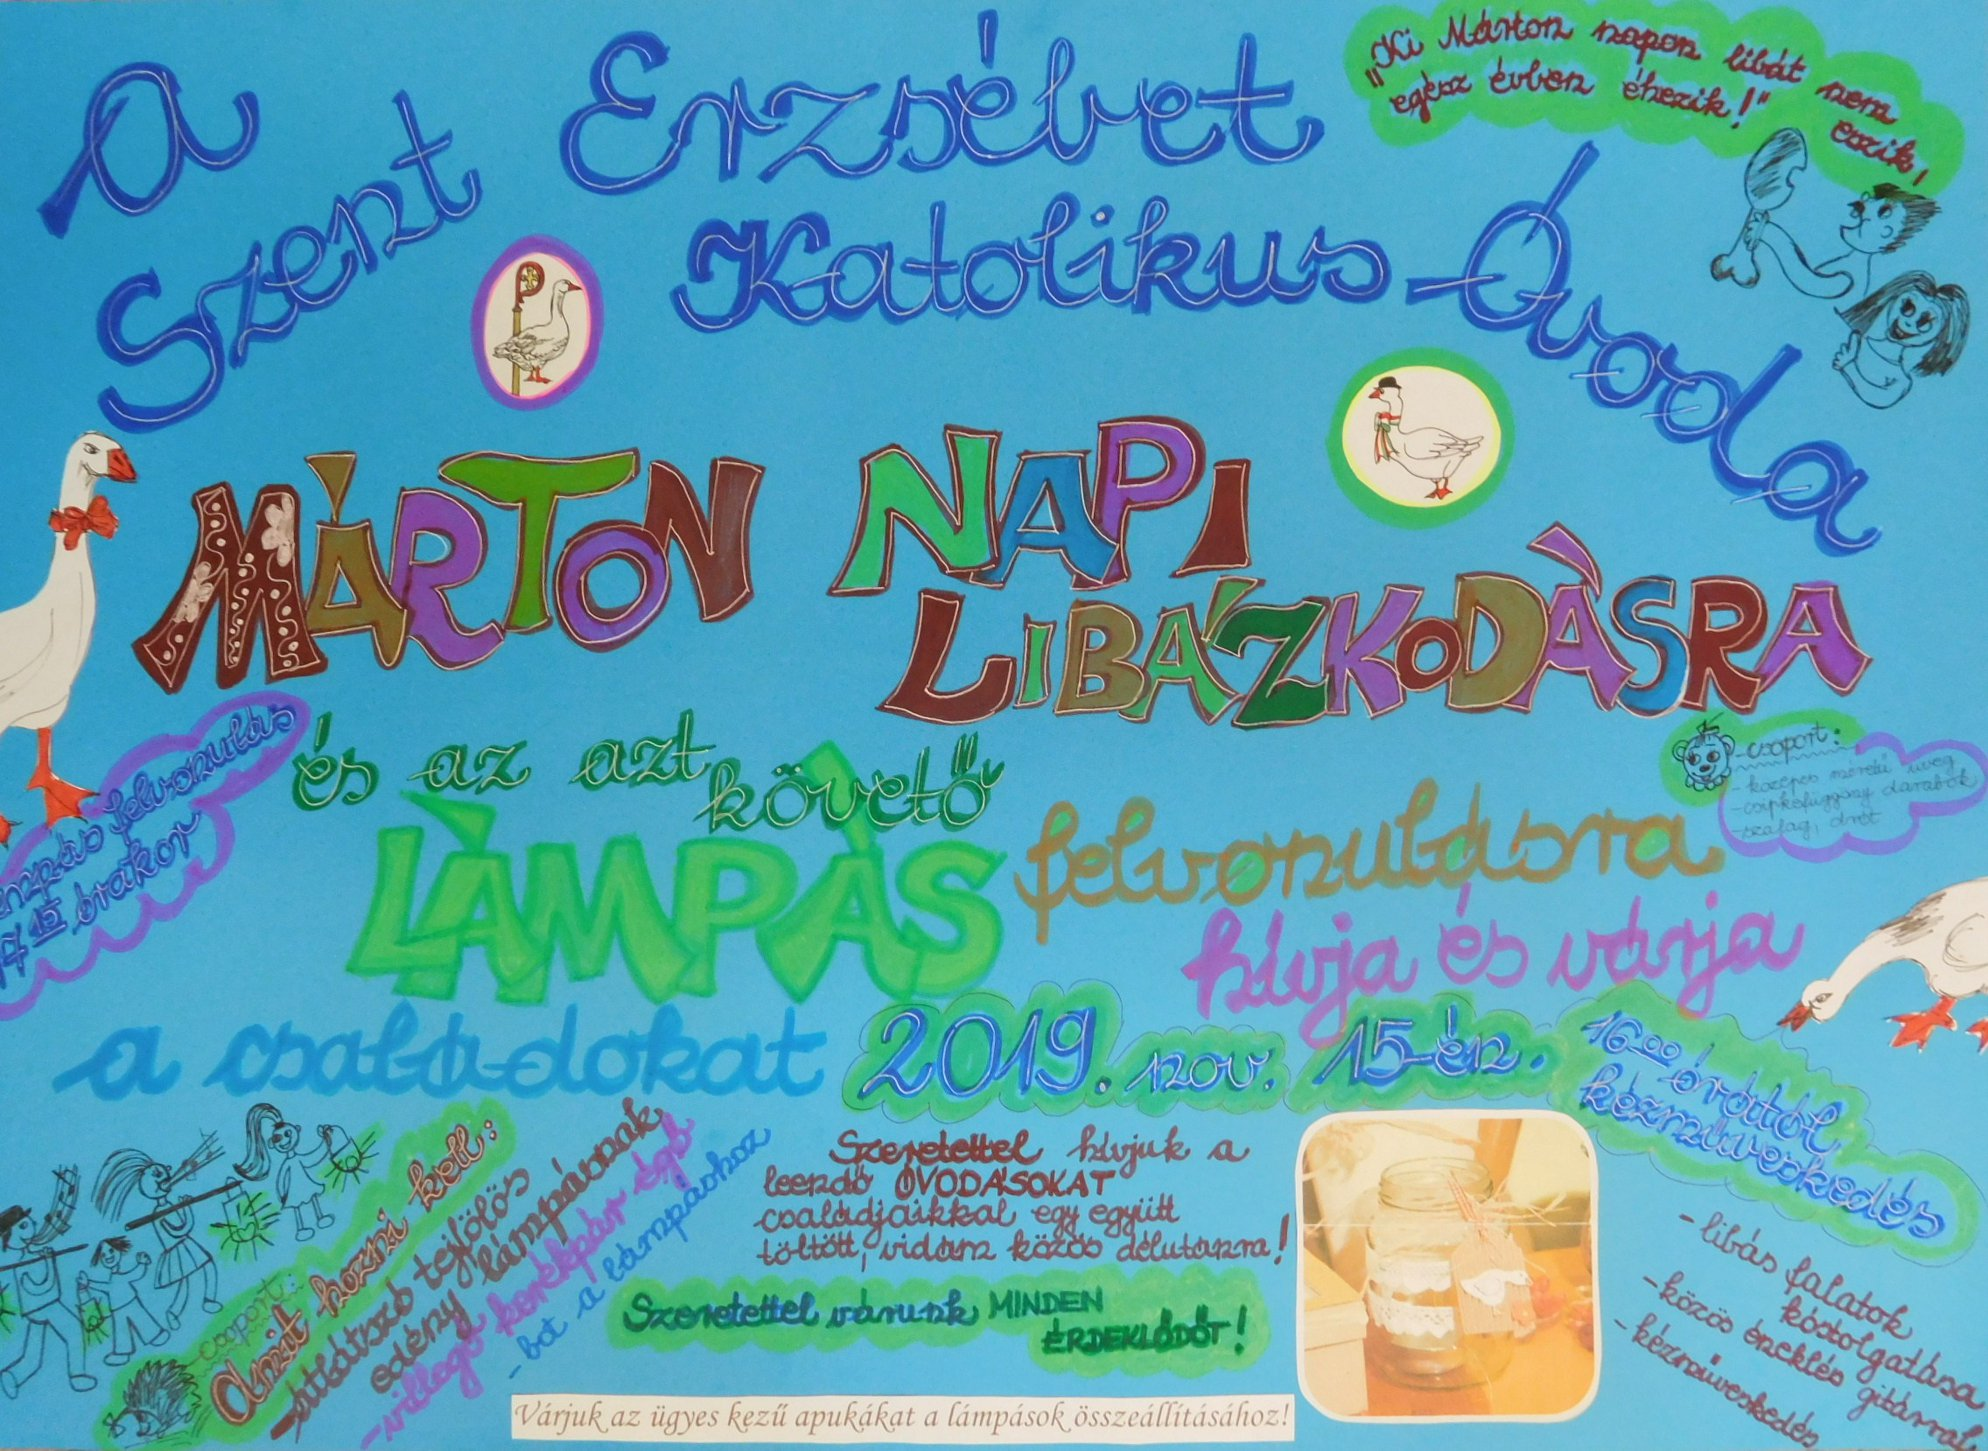 A
Szent
Erzsébet
Katolikus-Óvoda
„Ki Márton napon libát nem eszik,
egész évben éhezik!"
MÁRTON NAPI
LIBÁZKODÀSRA
és az azt
követő
LÀMPÀS felvonulásra
hívja és várja
a családokat 2019. nov. 15-én.
lámpás felvonulás
17 15 órakor
-csoport:
-közepes méretű üveg
-csipkefüggöny darabok
-szalag, drót
16 00 órától
kézműveskedés
-libás falatok
kóstolgatása
-közös éneklés gitárral
-kézműveskedés
-csoport:
Amit hozni kell:
-átlátszó tejfölös
edény lámpásnak
-villogó kerékpár égő
-bot a lámpáshoz
Szeretettel hívjuk a
leendő ÓVODÁSOKAT
családjaikkal egy együtt
töltött, vidám közös délutánra!
Szeretettel várunk MINDEN
ÉRDEKLŐDŐT!
Várjuk az ügyes kezű apukákat a lámpások összeállításához!